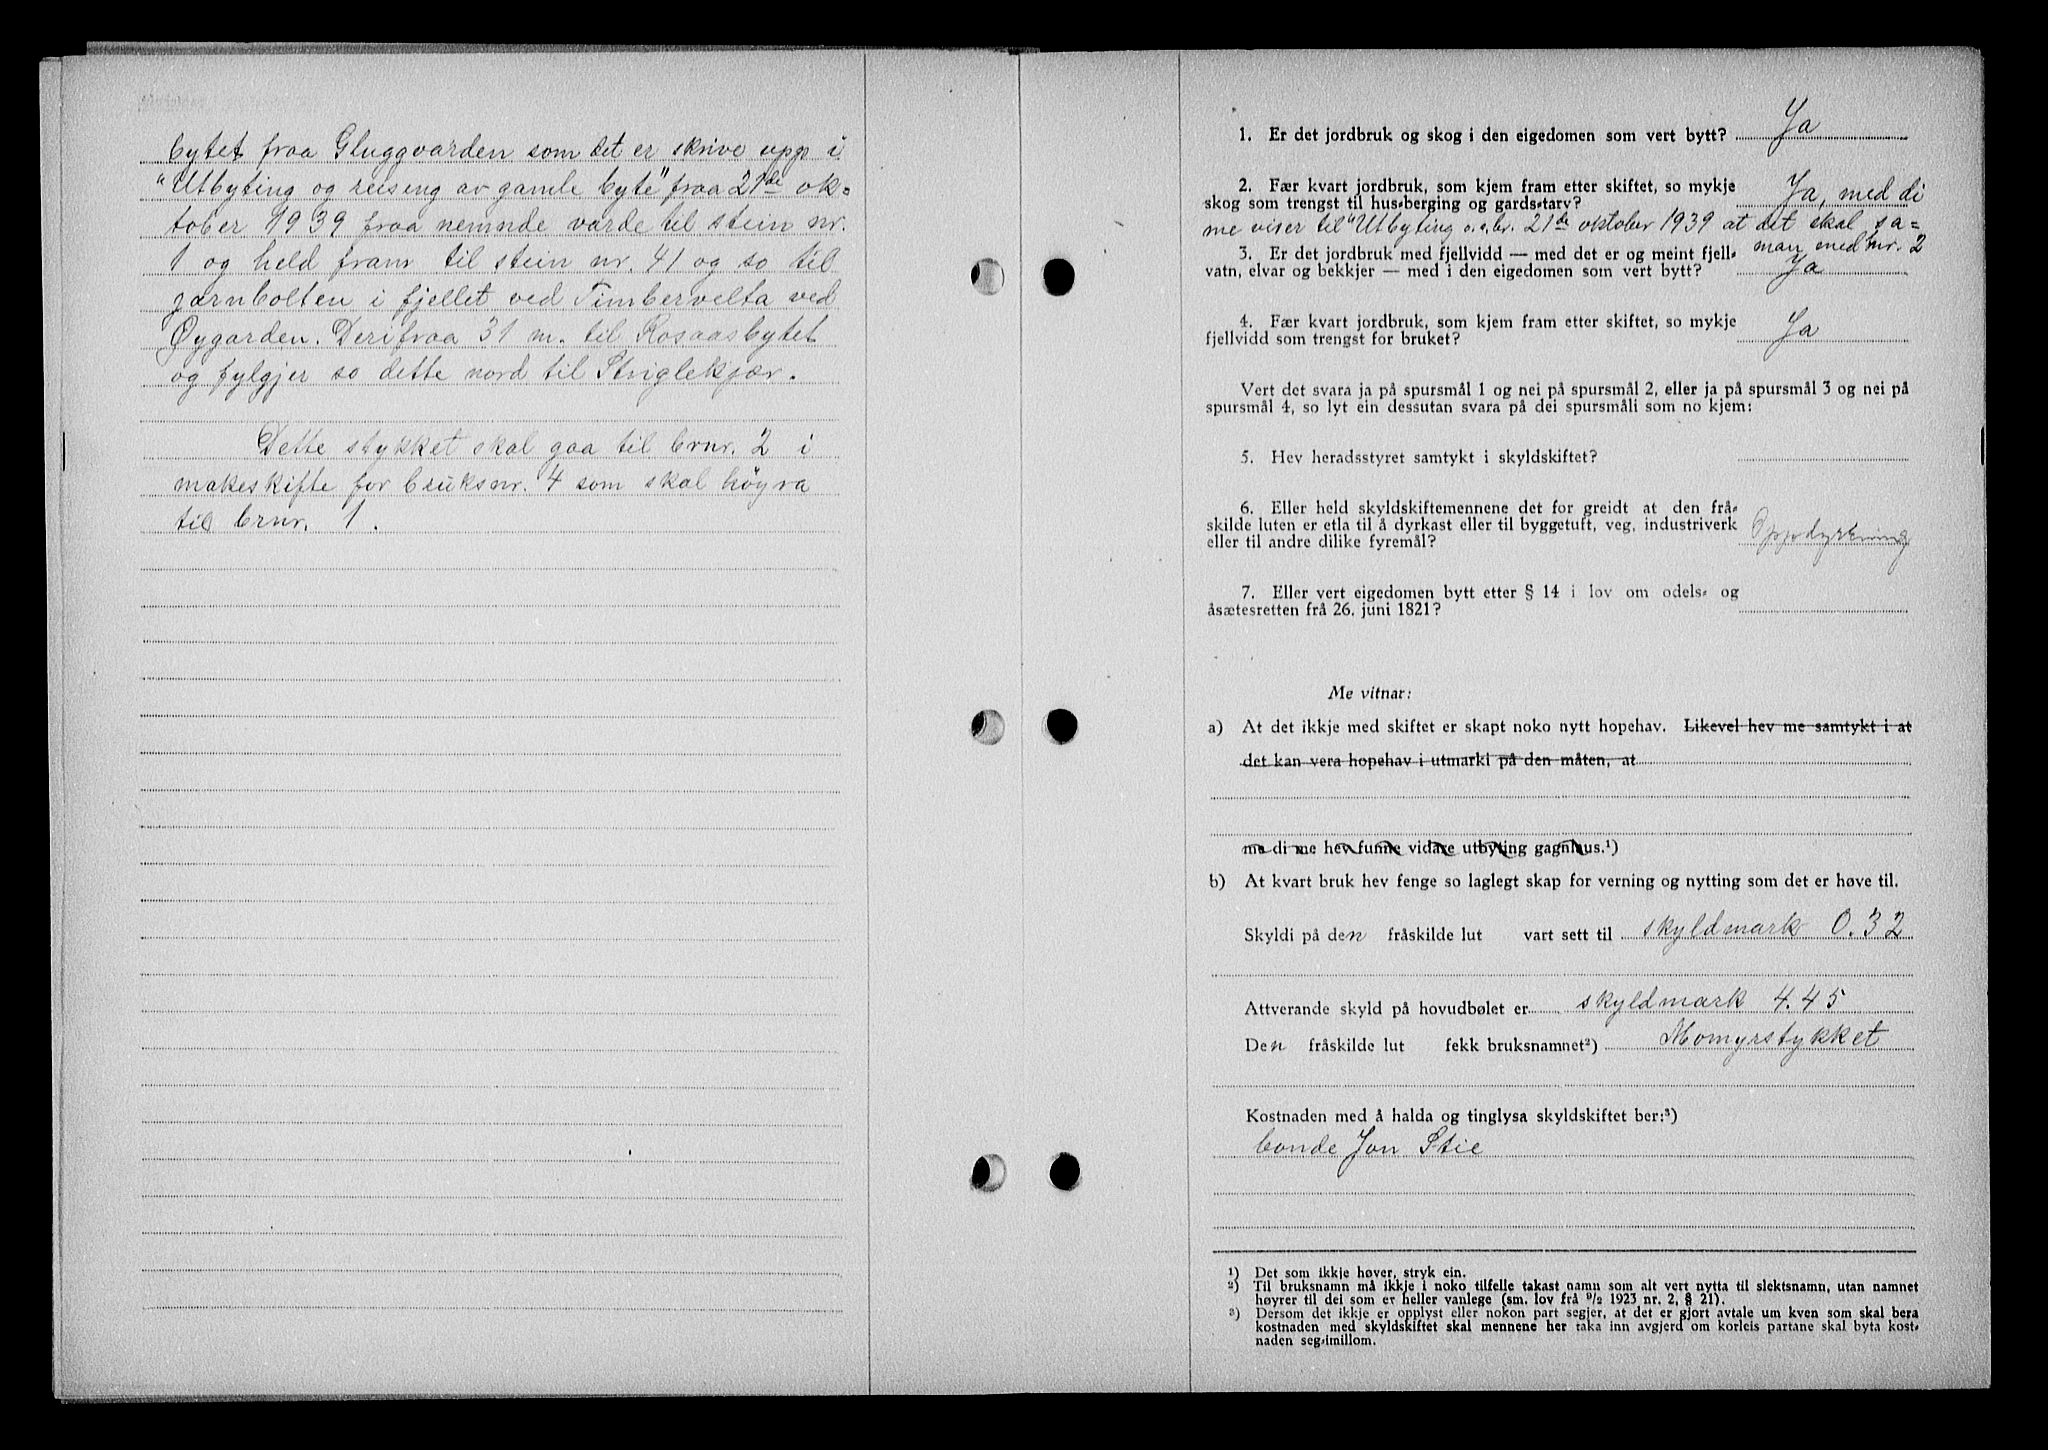 bytet fraa Gluggvarden som det er skrive upp i
"Utbyting og reising av gamle byte" fraa 21de ok-
tober 1939 fraa nemnde varde til stein nr.
1 og held fram til stein nr. 41 og so til
jarnbolten i fjellet ved Timbervelta ved
Øygarden. Derifraa 31 m. til Rosaasbytet
og fylgjer so dette nord til Stiglekjær.
Dette stykket skal gaa til brnr. 2 i
makeskifte for bruksnr. 4 som skal höyra
til brnr. 1.
1. Er det jordbruk og skog i den eigedomen som vert bytt? Ja
2. Fær kvart jordbruk, som kjem fram etter skiftet, so mykje
skog som trengst til hus-berging og gards-tarv? Ja, med di
me viser til "Utbyting o.s.br. 21de oktober 1939 at det skal sa=
man med bnr. 2
3. Er det jordbruk med fjellvidd — med det er og meint fjell-
vatn, elvar og bekkjer — med i den eigedomen som vert bytt? Ja
4. Fær kvart jordbruk, som kjem fram etter skiftet, so mykje
fjellvidd som trengst for bruket? Ja
Vert det svara ja på spursmål 1 og nei på spursmål 2, eller ja på spursmål 3 og nei på
spursmål 4, so lyt ein dessutan svara på dei spursmåli som no kjem:
5. Hev heradsstyret samtykt i skyldskiftet?
6. Eller held skyldskiftemennene det for greidt at den frå-
skilde luten er etla til å dyrkast eller til byggetuft, veg, industriverk
eller til andre dilike fyremål? Oppdyrkning
7. Eller vert eigedomen bytt etter § 14 i lov om odels- og
åsætesretten frå 26. juni 1821?
Me vitnar:
a) At det ikkje med skiftet er skapt noko nytt hopehav. Likevel hev me samtykt i at
det kan vera hopehav i utmarki på den måten, at
me di me hev funne vidare utbyting gagnlaus.¹)
b) At kvart bruk hev fenge so laglegt skap for verning og nytting som det er høve til.
Skyldi på den fråskilde lut vart sett til skyldmark 0.32
Attverande skyld på hovudbølet er skyldmark 4.45
Den fråskilde lut fekk bruksnamnet²) Momyrstykket
Kostnaden med å halda og tinglysa skyldskiftet ber:³)
bonde Jon Stie
¹) Det som ikkje høver, stryk ein.
²) Til bruksnamn må ikkje i noko tilfelle takast namn som alt vert nytta til slektsnamn, utan namnet
høyrer til dei som er heller vanlege (sm. lov frå 9/2 1923 nr. 2, § 21).
³) Dersom det ikkje er opplyst eller nokon part segjer, at det er gjort avtale um kven som skal bera
kostnaden med skyldskiftet skal mennene her taka inn avgjerd om korleis partane skal byta kost-
naden seg-imillom.